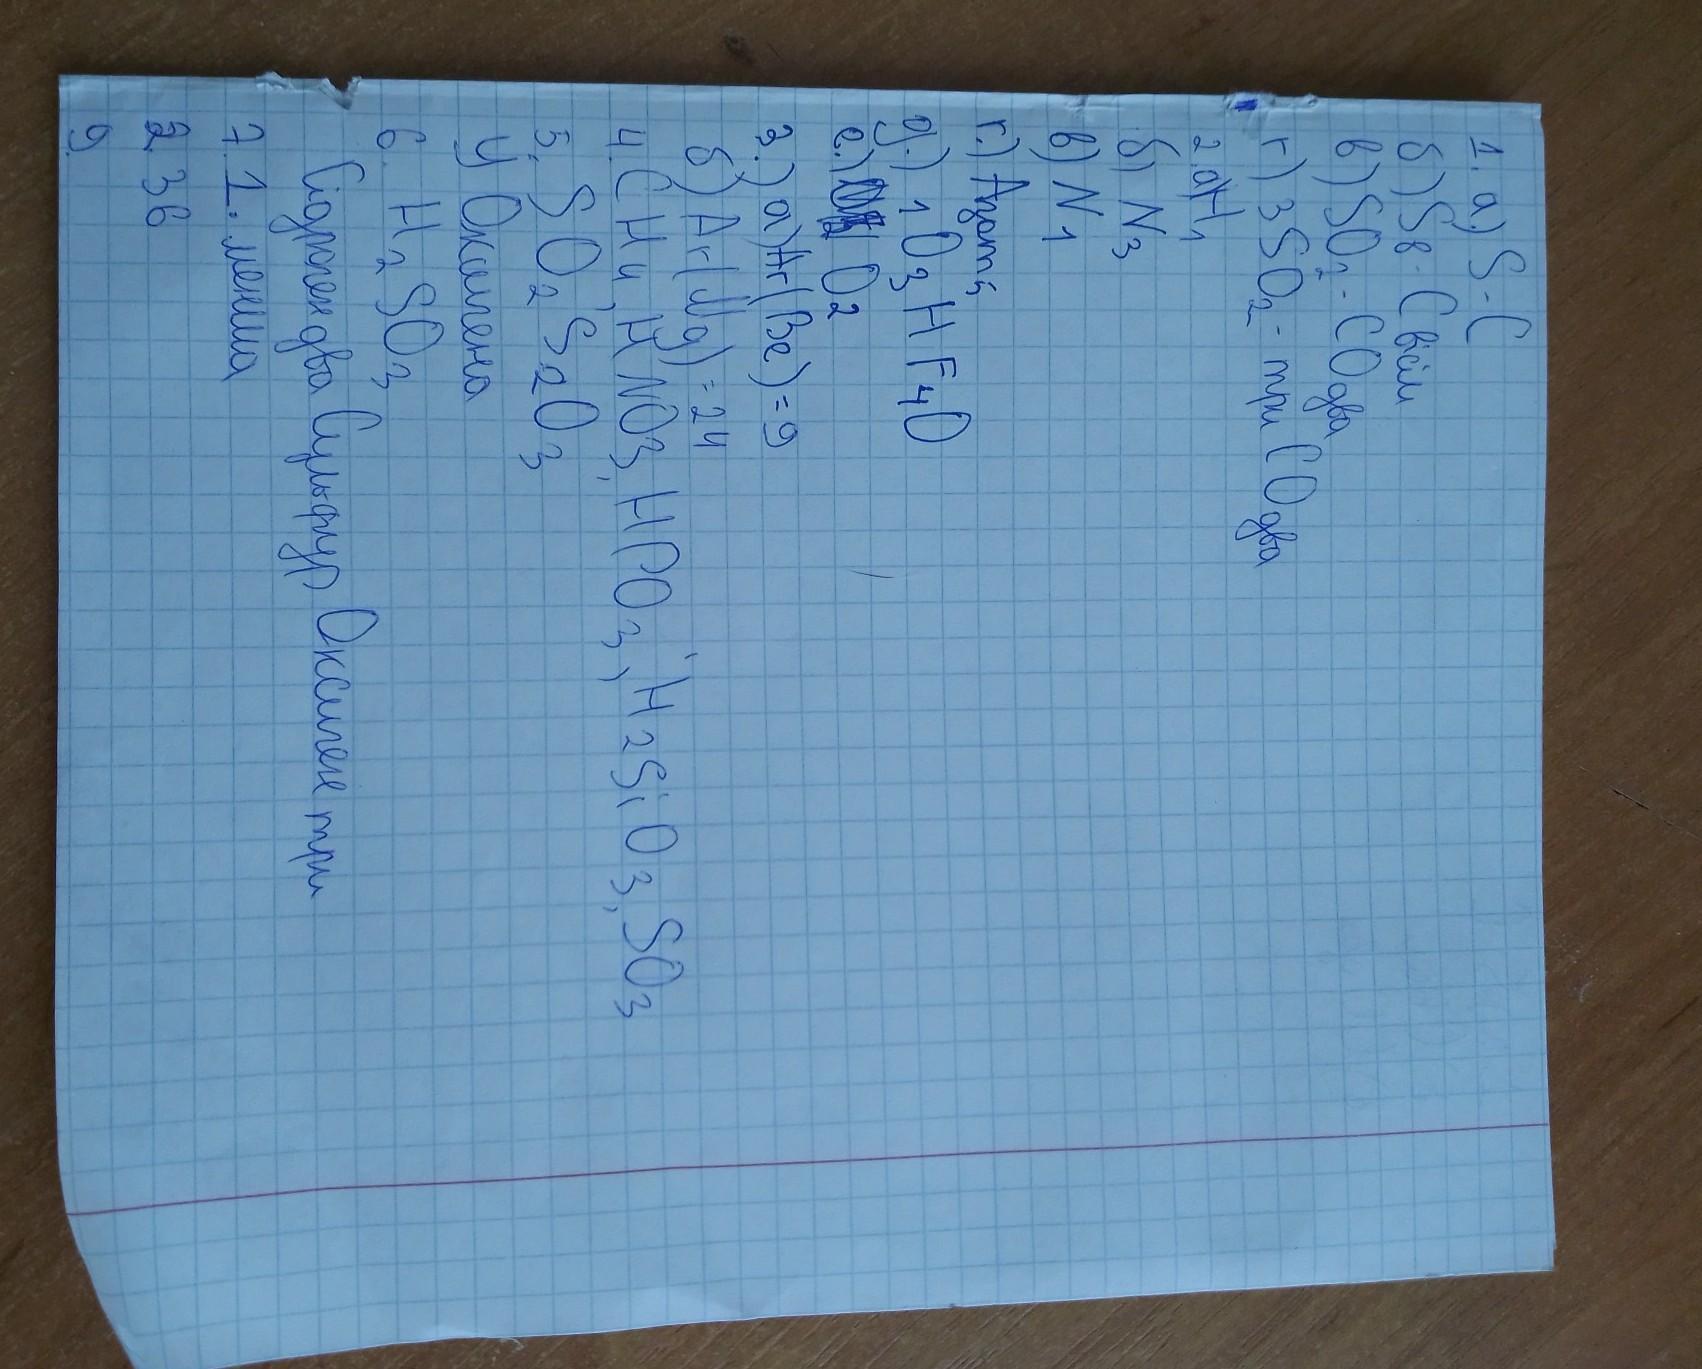 1. а) S - С
б) S8 - С вісім
в) SO2 - СО два
г) 3SO2 - три СО два
2. а) H1
б) N3
в) N1
г.) Agomi
д.) 1O3 H F4O
е.) O2
3.) а) Ar(Be) = 9
б) Ar(Mg) = 24
4. CH4, HNO3, HPO3, H2SiO3, SO3
5. SO2 S2O3
У Оксигена
6. H2SO3
Гідроген два Сульфур Оксиген три
7. 1. менша
2. 36
9.